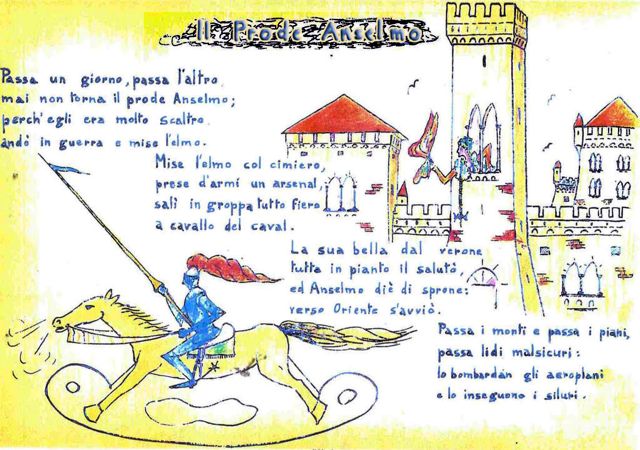 Il Prode Anselmo
Passa un giorno, passa l'altro
mai non torna il prode Anselmo;
perch'egli era molto scaltro
andò in guerra e mise l'elmo.
Mise l'elmo col cimiero,
prese d'armi un arsenal,
salì in groppa tutto fiero
a cavallo del caval.
La sua bella dal verone
tutta in pianto il salutò,
ed Anselmo diè di sprone:
verso Oriente s'avviò.
Passa i monti e passa i piani,
passa lidi malsicuri:
lo bombardàn gli aeroplani
e lo inseguono i siluri.